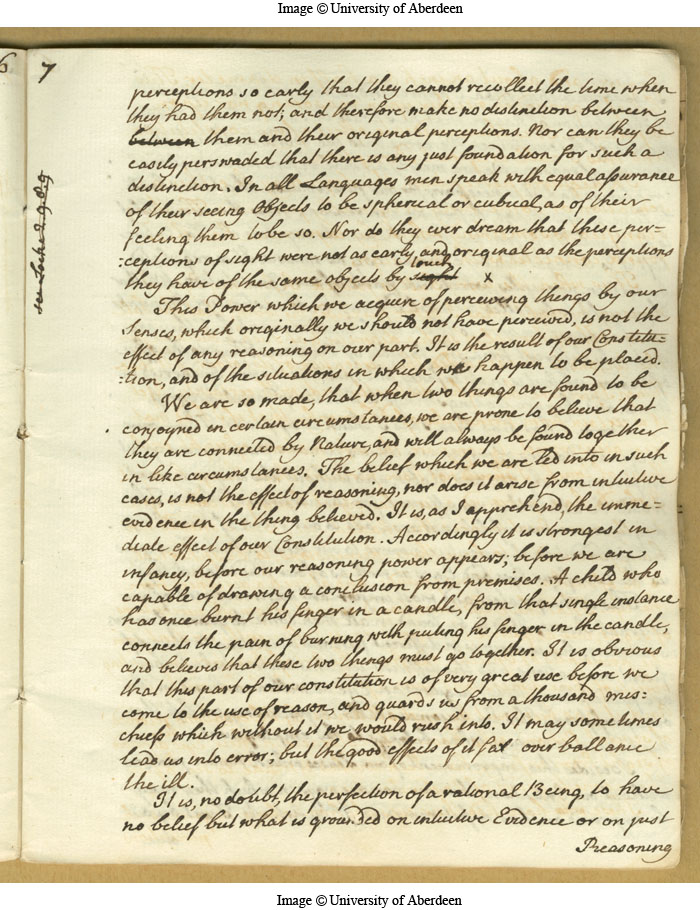 Image © University of Aberdeen
6
7
perceptions so early that they cannot recollect the time when
they had them not; and therefore make no distinction between
between them and their original perceptions. Nor can they be
easily perswaded that there is any just foundation for such a
distinction. In all Languages men speak with equal assurance
of their seeing Objects to be spherical or cubical, as of their
feeling them to be so. Nor do they ever dream that these per=
:ceptions of sight were not as early and original as the perceptions
they have of the same objects by sight touch x
This Power which we acquire of perceiving things by our
Senses, which originally we should not have perceived, is not the
effect of any reasoning on our part. It is the result of our Constitu=
:tion, and of the situations in which we happen to be placed.
We are so made, that when two things are found to be
conjoyned in certain circumstances, we are prone to believe that
they are connected by Nature, and will always be found together
in like circumstances. The belief which we are led into in such
cases, is not the effect of reasoning, nor does it arise from intuitive
evidence in the thing believed. It is, as I apprehend, the imme=
diate effect of our Constitution. Accordingly it is strongest in
infancy, before our reasoning power appears; before we are
capable of drawing a conclusion from premises. A child who
has once burnt his finger in a candle, from that single instance
connects the pain of burning with puting his finger in the candle,
and believes that these two things must go together. It is obvious
that this part of our constitution is of very great use before we
come to the use of reason, and guards us from a thousand mis=
chiefs which without it we would rush into. It may sometimes
lead us into error; but the good effects of it far over ballance
the ill.
It is, no doubt, the perfection of a rational Being, to have
no belief but what is grounded on intuitive Evidence or on just
Reasoning
see Locke 2. 9. 8, 9
Image © University of Aberdeen